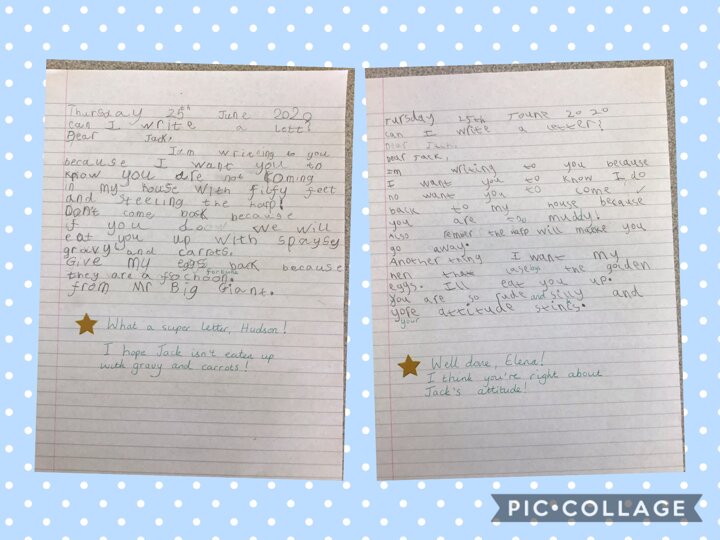 Thursday 25th June 2020
can I write a lett?
Dear Jack,
I'm writeing to you
because I want you to
know you are not coming
in my house with filfy feet
and steeling the harp!
Don't come back because
if you do we will
eat you up with spaysey
gravy and carrots.
Give my eggs back because
they are a fochoon. fortune
from Mr Big Giant.
What a super letter, Hudson!
I hope Jack isn't eaten up
with gravy and carrots!
Tursday 25th Joune 2020
can I write a letter?
Dear Jack,
Dear Jack,
im writing to you because
I want you to know I do
no want you to come
back to my house because
you are too muddy!
Also the harp will make you
go away.
Another thing I want my
hen that the golden
eggs. Ill eat you up.
You are so rude and silly and
yore attitude stincs.
your
Well done, Elena!
I think you're right about
Jack's attitude!
PIC•COLLAGE